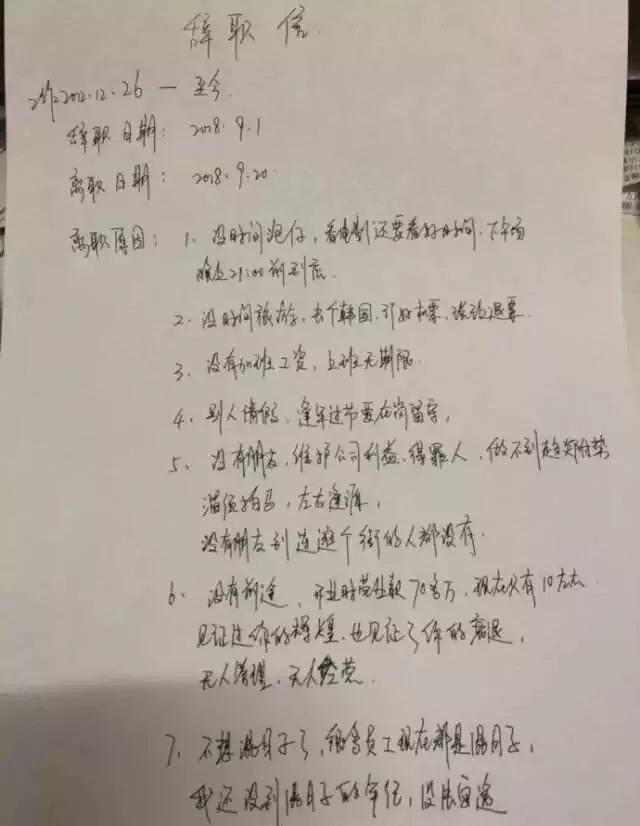 辞职信
工作2012.12.26 — 至今
辞职日期：2018.9.1
离职日期：2018.9.20
离职原因：1、没时间泡仔，看电影还要看好时间，下午场
21:00前到店.
2、没时间旅游，去个韩国，订好机票，退票
3、没有加班工资，上班无期限.
4、别人请假，逢年过节要在岗留守，
5、没有朋友，维护公司利益，得罪人，做不到趋炎附势
溜须拍马，左右逢源，
没有朋友到连逛个街的人都没有.
6、没有前途，开业时营业额70多万，现在只有10左右
见证过你的辉煌，也见证了你的衰退，
无人管理，无人经营.
7、不想混日子了，销售员工现在都是混日子，
我还没到混日子的年纪，没法